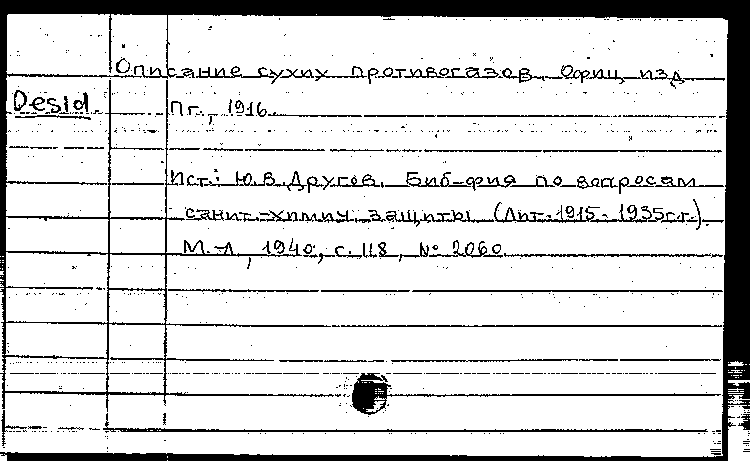 Описание сухих противогазов. Офиц. изд.
Desid.
Пг., 1916.
Ист.: Ю.В. Другов. Биб-фия по вопросам
санит.-химич. защиты (Лит. 1915-1935г.г.).
М.-Л., 1940, с. 118, № 2060